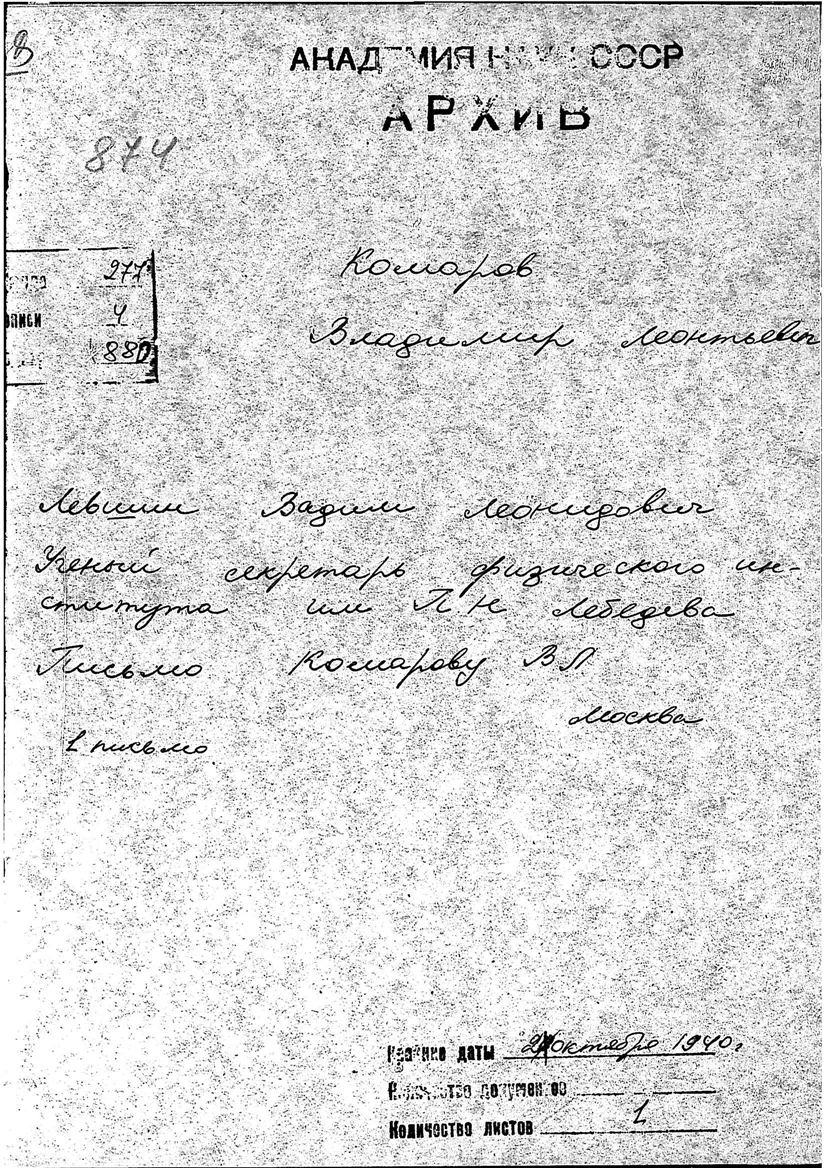 8
АКАДЕМИЯ НАУК СССР
АРХИВ
874
277
описи 4
880
Комаров
Владимир Леонтьевич
Левшин Вадим Леонидович
Ученый секретарь физического ин-
ститута им П Н Лебедева
Письмо Комарову В Л
Москва
1 письмо
Крайние даты октября 1940 г
Количество документов
Количество листов 1